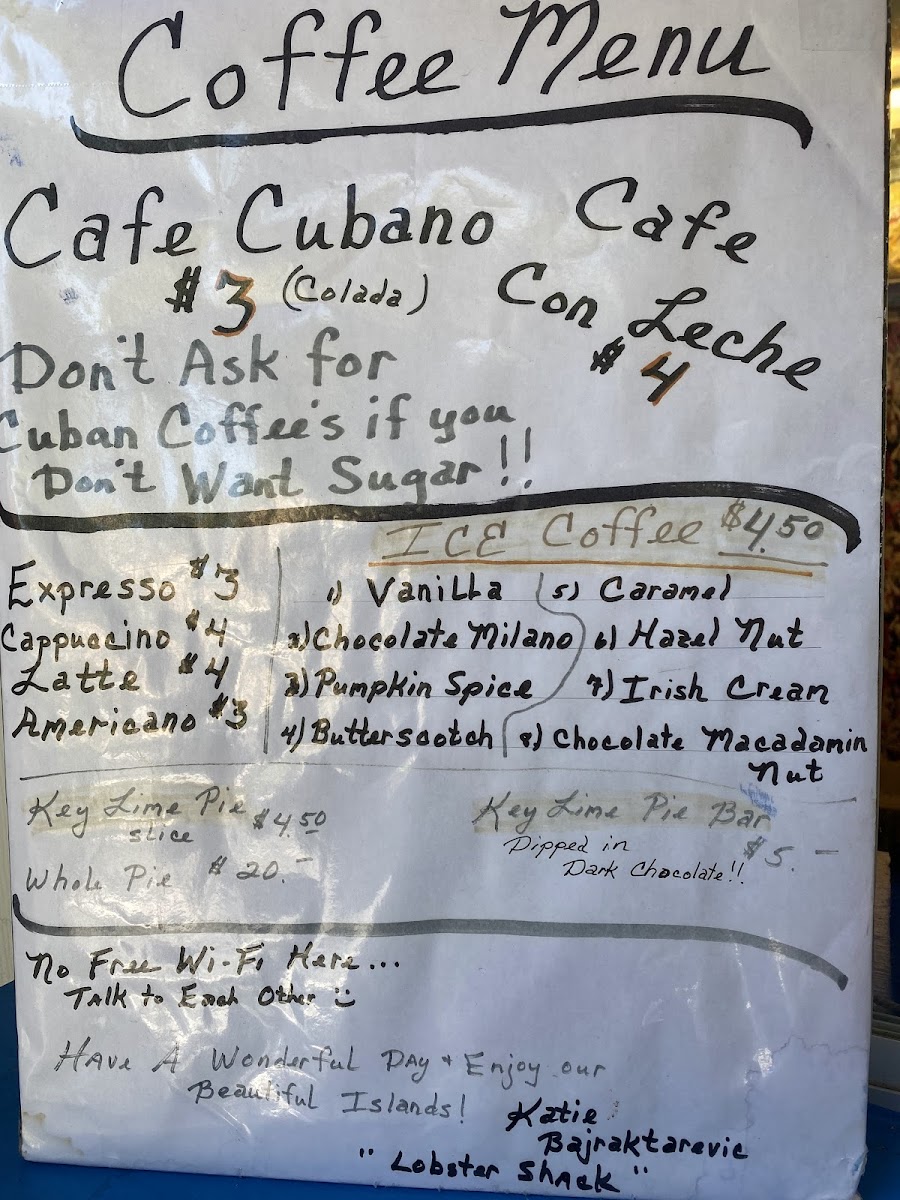 Coffee Menu
Cafe Cubano
$3 (Colada)
Cafe
Con Leche
$4
Don't Ask for
Cuban Coffee's if you
Don't Want Sugar!!
ICE Coffee $4.50
Expresso $3
Cappuccino $4
Latte $4
Americano $3
1) Vanilla
2) Chocolate Milano
3) Pumpkin Spice
4) Butterscotch
5) Caramel
6) Hazel Nut
7) Irish Cream
8) Chocolate Macadamin
Nut
Key Lime Pie
slice $4.50
Whole Pie $20.-
Key Lime Pie Bar
$5.-
Dipped in
Dark Chocolate!!
No Free Wi-Fi Here...
Talk to Each Other
Have A Wonderful Day + Enjoy our
Beautiful Islands!
Katie
Bajraktarevic
"Lobster Shack"